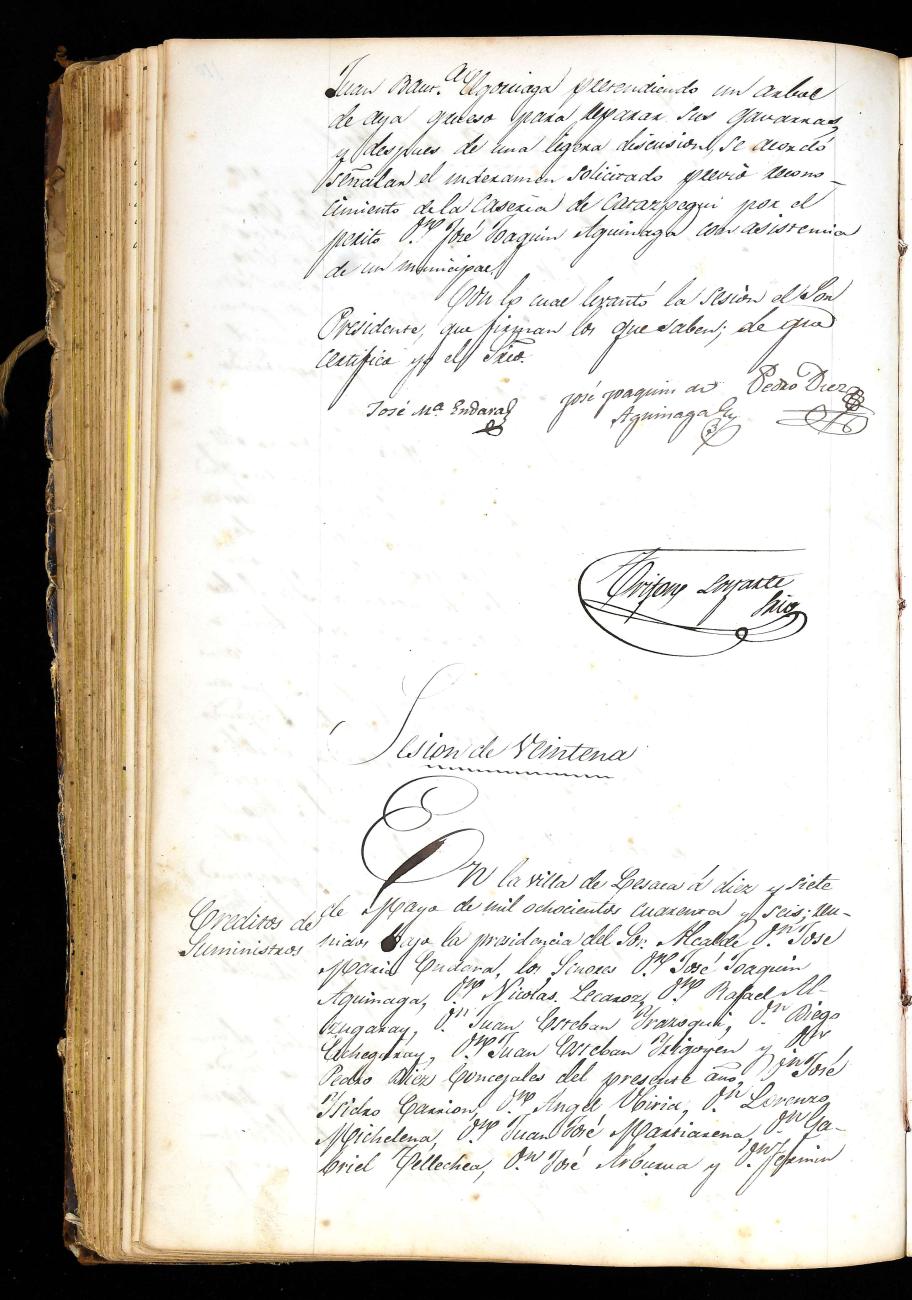 Juan Baut.ª Elgorriaga pretendiendo un arbol
de aya grueso para reparar sus gavarras,
y despues de una ligera discusion, se acordó
señalar el maderamen solicitado previo recono-
cimiento de la Caseria de Cararzpegui por el
perito Dn. José Joaquin Aguinaga con asistencia
de un municipal.
Con lo cual levantó la sesion el Sor.
Presidente, que firman los que saben; de que
certifica yo el Srio.
José Mª Endara
José Joaquin de
Aguinaga
Pedro Diez
Lorgante
Srio
Sesion de Veintena
En la villa de Lesaca á diez y siete
Creditos de
Suministros
de Mayo de mil ochocientos cuarenta y seis; reu-
nidos bajo la presidencia del Sor. Alcalde Dn. José
Maria Endara, los Señores Dn. José Joaquin
Aguinaga, Dn. Nicolás Lecaroz, Dn. Rafael Al-
zugaray, Dn. Juan Esteban Irazoqui, Dn. Diego
Echegaray, Dn. Juan Esteban Irigoyen y Dn.
Pedro Diez Concejales del presente año, Dn. José
Isidro Carrion, Dn. Angel Ubiria, Dn. Lorenzo
Michelena, Dn. Juan José Martiarena, Dn. Ga-
briel Tellechea, Dn. José Arburua y Dn. Fermin